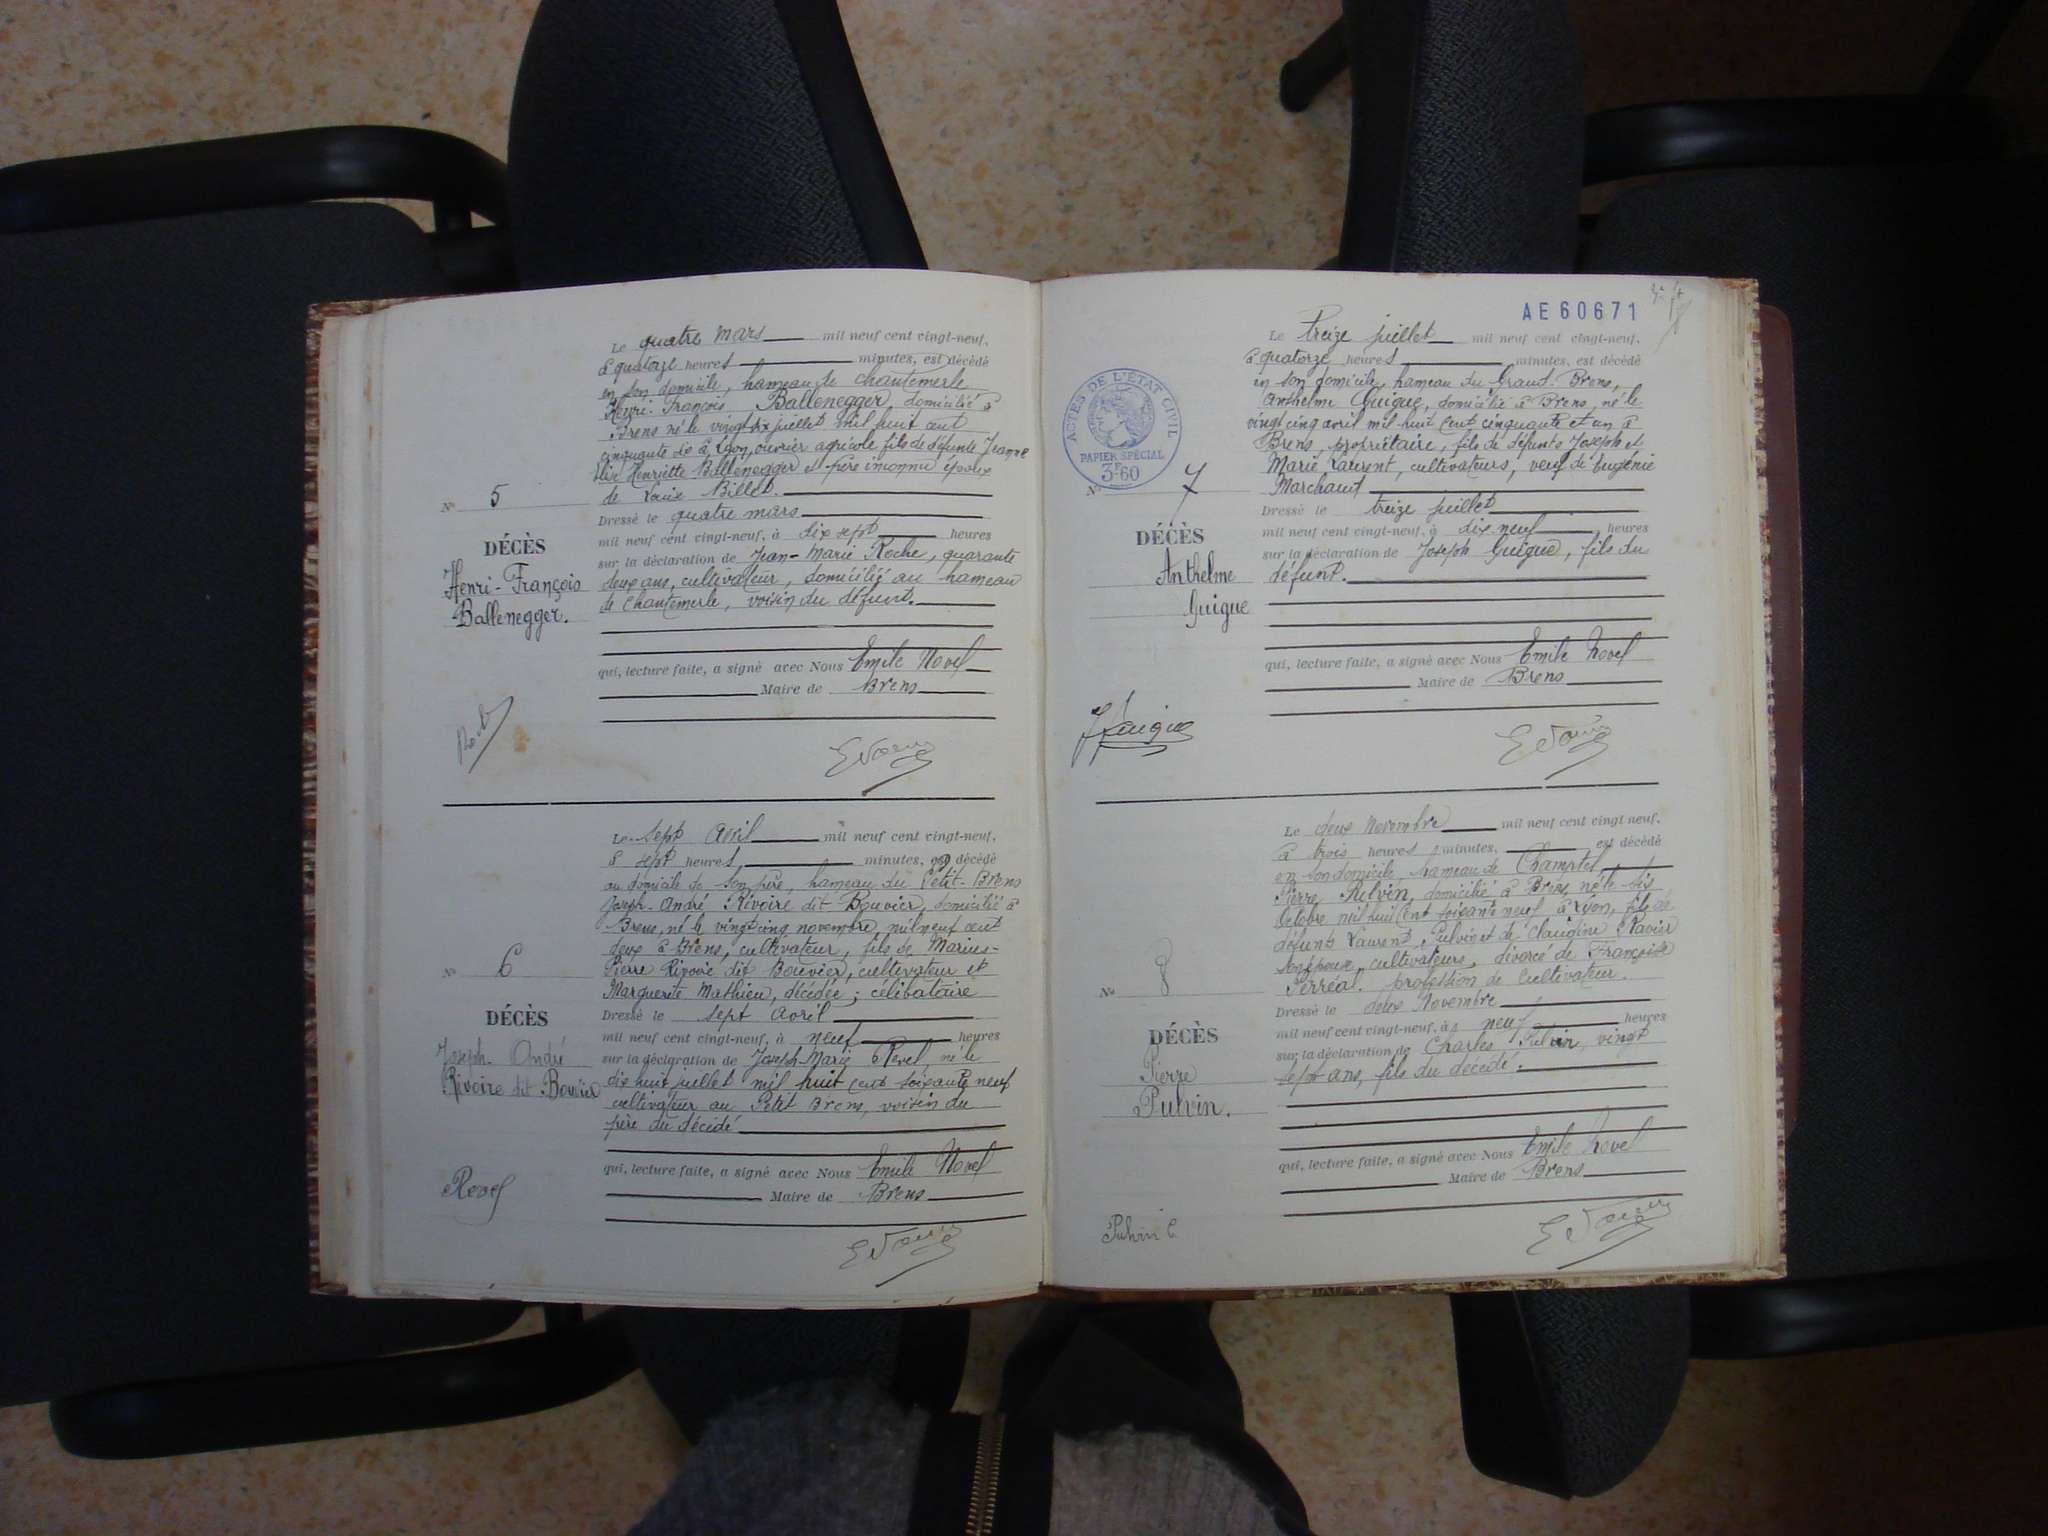 Le quatre mars mil neuf cent vingt-neuf,
à quatorze heures minutes, est décédé
en son domicile, hameau de Chantemerle
Henri-François Ballenegger, domicilié à
Brens né le vingt six juillet mil huit cent
cinquante six à Lyon, ouvrier agricole fils de défunte Jeanne
Elise Henriette Ballenegger et père inconnu époux
de Louise Billet.
Dressé le quatre mars
mil neuf cent vingt-neuf, à dix sept heures
sur la déclaration de Jean-Marie Roche, quarante
deux ans, cultivateur, domicilié au hameau
de Chantemerle, voisin du défunt.
qui, lecture faite, a signé avec Nous Emile Novel
Maire de Brens
No 5
DÉCÈS
Henri-François
Ballenegger.
Le sept Avril mil neuf cent vingt-neuf,
à sept heures, minutes, est décédé
au domicile de son père, hameau du Petit-Brens
Joseph-André Rivoire dit Bouvier, domicilié à
Brens, né le vingt cinq novembre mil neuf cent
deux à Brens, cultivateur, fils de Marius-
Pierre Rivoire dit Bouvier, cultivateur et
Marguerite Mathieu, décédée; célibataire
Dressé le sept Avril
mil neuf cent vingt-neuf, à neuf heures
sur la déclaration de Joseph-Marie Revel, né le
dix huit juillet mil huit cent soixante neuf
cultivateur au Petit Brens, voisin du
père du décédé
qui, lecture faite, a signé avec Nous Emile Novel
Maire de Brens
No 6
DÉCÈS
Joseph-André
Rivoire dit Bouvier
Revel
AE60671
ACTES DE L'ÉTAT CIVIL
PAPIER SPÉCIAL
3F60
Le treize juillet mil neuf cent vingt-neuf,
à quatorze heures minutes, est décédé
en son domicile, hameau du Grand-Brens,
Anthelme Guigue, domicilié à Brens, né le
vingt cinq avril mil huit cent cinquante et un à
Brens, propriétaire, fils de défunts Joseph et
Marie Laurent, cultivateurs, veuf de Eugénie
Marchant
Dressé le treize juillet
mil neuf cent vingt-neuf, à dix neuf heures
sur la déclaration de Joseph Guigue, fils du
défunt.
qui, lecture faite, a signé avec Nous Emile Novel
Maire de Brens
No 7
DÉCÈS
Anthelme
Guigue
J Guigue
Le deux Novembre mil neuf cent vingt neuf,
à trois heures minutes, est décédé
en son domicile, hameau de Champtel
Pierre Pulvin, domicilié à Brens, né le six
Octobre mil huit cent soixante neuf à Lyon, fils de
défunts Laurent Pulvin et de Claudine
son épouse, cultivateurs, divorcé de Françoise
Perréal. profession de Cultivateur.
Dressé le deux Novembre
mil neuf cent vingt-neuf, à neuf heures
sur la déclaration de Charles Pulvin, vingt
sept ans, fils du décédé.
qui, lecture faite, a signé avec Nous Emile Novel
Maire de Brens
No 8
DÉCÈS
Pierre
Pulvin.
Pulvin C